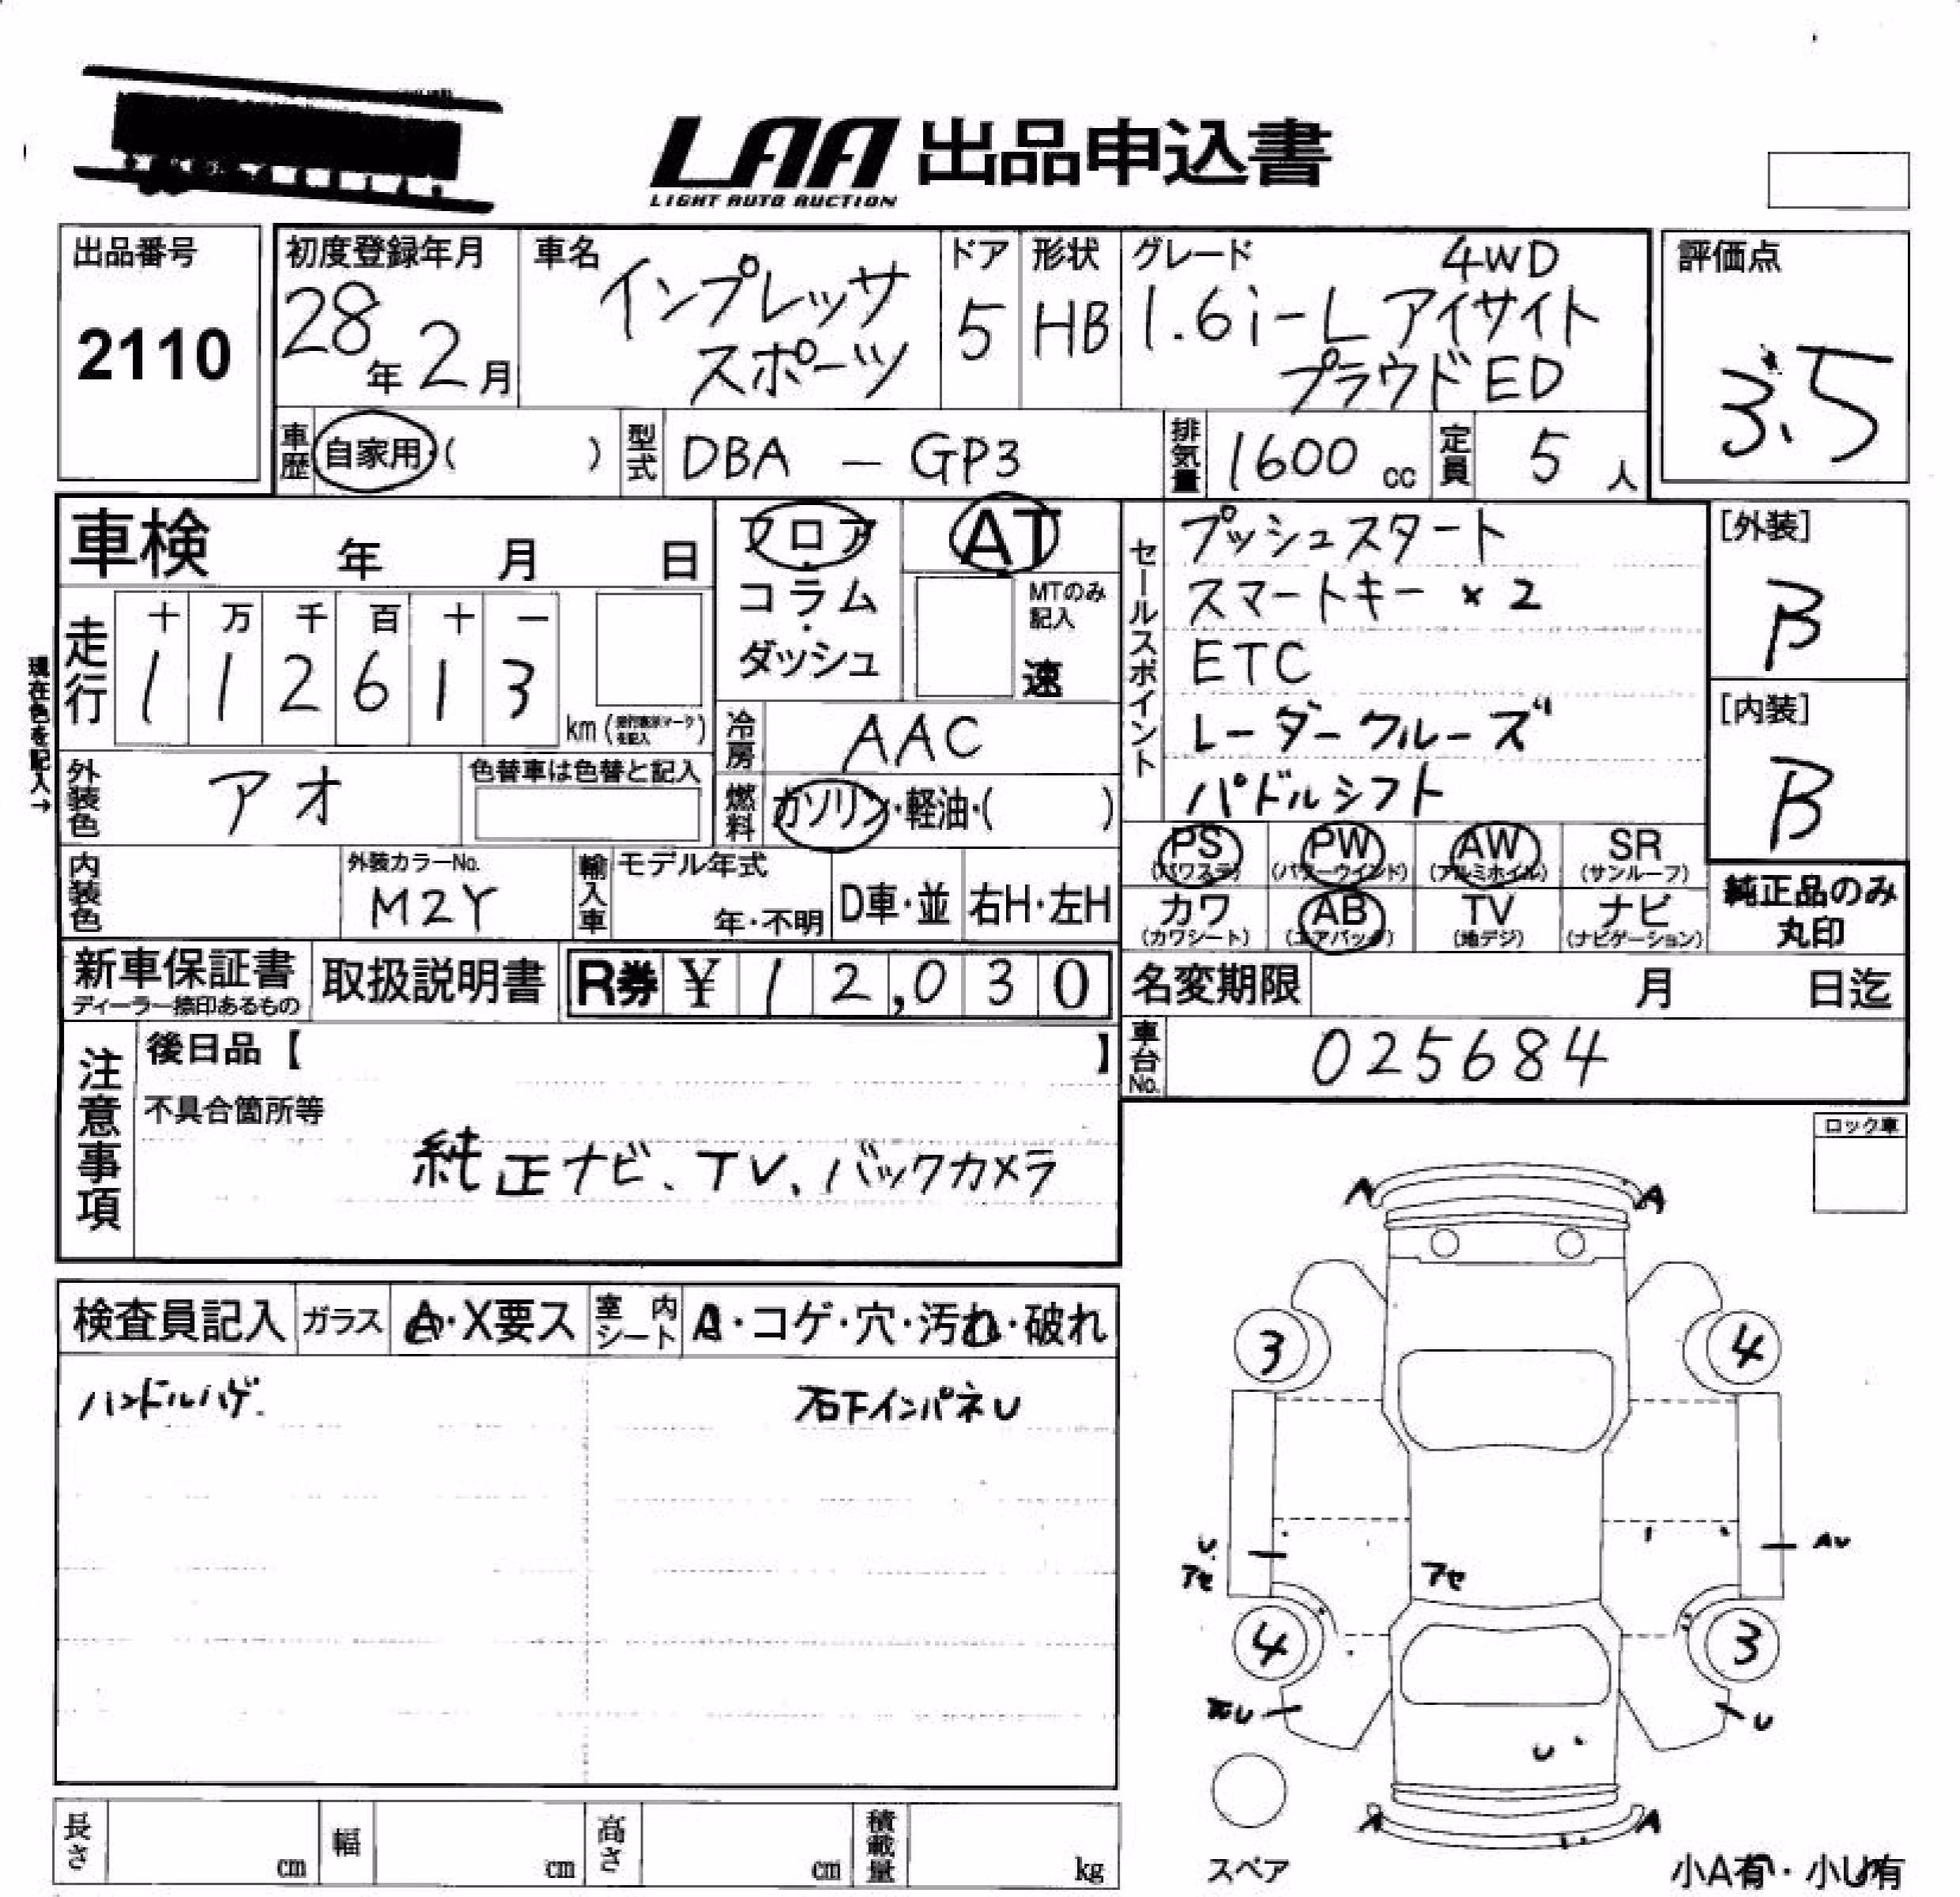 LAA 出品申込書
LIGHT AUTO AUCTION
出品番号
2110
初度登録年月
28年2月
車名
インプレッサ
スポーツ
ドア
5
形状
HB
グレード
4WD
1.6i-L アイサイト
プラウドED
評価点
3.5
車歴 自家用・( )
型式 DBA - GP3
排気量 1600 cc
定員 5 人
車検 年 月 日
フロア・コラム・ダッシュ
AT
MTのみ記入
速
現在色を記入→
走行
十 万 千 百 十 一
1 1 2 6 1 3
km
冷房 AAC
燃料 ガソリン・軽油・( )
外装色 アオ
色替車は色替と記入
内装色
外装カラーNo.
M2Y
輸入車
モデル年式
年・不明
D車・並
右H・左H
セールスポイント
プッシュスタート
スマートキー ×2
ETC
レーダークルーズ
パドルシフト
[外装]
B
[内装]
B
PS (パワステ) PW (パワーウインド) AW (アルミホイル) SR (サンルーフ)
カワ (カワシート) AB (エアバッグ) TV (地デジ) ナビ (ナビゲーション)
純正品のみ
丸印
新車保証書
ディーラー捺印あるもの
取扱説明書
R券 ¥ 12,030
名変期限 月 日迄
車台No. 025684
注意事項
後日品【 】
不具合箇所等
純正ナビ、TV、バックカメラ
ロック車
検査員記入
ガラス A・X要ス
室内シート A・コゲ・穴・汚れ・破れ
ハンドルハゲ.
右下インパネU
A A
3 4
U
アセ
アセ
AU
4 3
U
U
U
A A
スペア
小A有・小U有
長さ cm
幅 cm
高さ cm
積載量 kg